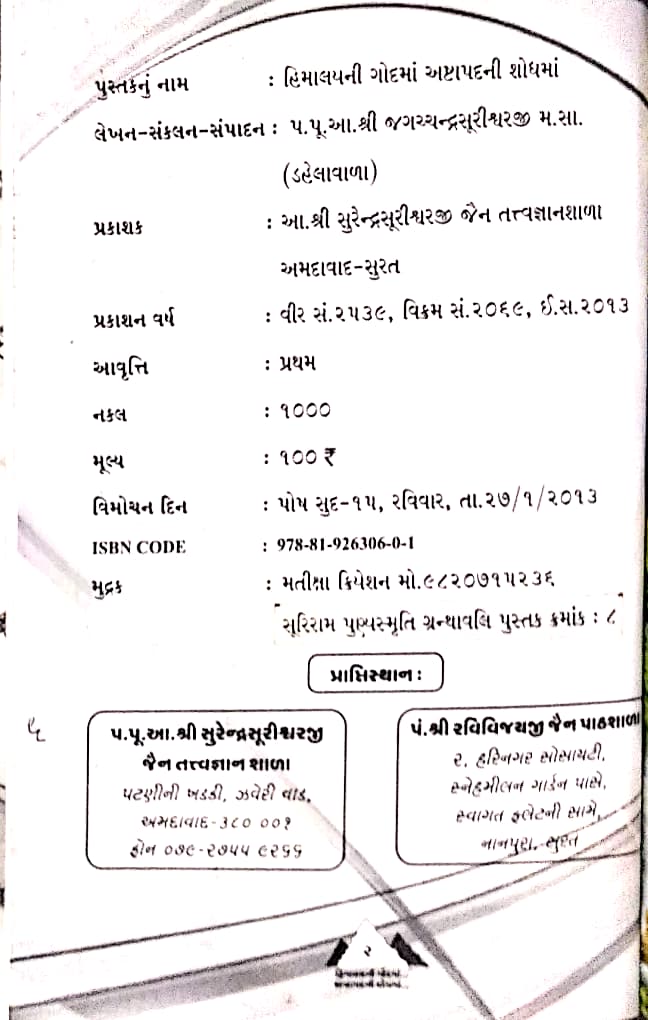 પુસ્તકનું નામ : હિમાલયની ગોદમાં અષ્ટાપદની શોધમાં
લેખન-સંકલન-સંપાદન : પ.પૂ.આ.શ્રી જગચ્ચન્દ્રસૂરીશ્વરજી મ.સા.
(ડહેલાવાળા)
પ્રકાશક : આ.શ્રી સુરેન્દ્રસૂરીશ્વરજી જૈન તત્ત્વજ્ઞાનશાળા
અમદાવાદ-સુરત
પ્રકાશન વર્ષ : વીર સં.૨૫૩૯, વિક્રમ સં.૨૦૬૯, ઈ.સ.૨૦૧૩
આવૃત્તિ : પ્રથમ
નકલ : ૧૦૦૦
મૂલ્ય : ૧૦૦ ₹
વિમોચન દિન : પોષ સુદ-૧૫, રવિવાર, તા.૨૭/૧/૨૦૧૩
ISBN CODE : 978-81-926306-0-1
મુદ્રક : મતીક્ષા ક્રિયેશન મો.૯૮૨૦૭૧૫૨૩૬
સૂરિરામ પુણ્યસ્મૃતિ ગ્રન્થાવલિ પુસ્તક ક્રમાંક : ૮
પ્રાપ્તિસ્થાન :
પ.પૂ.આ.શ્રી સુરેન્દ્રસૂરીશ્વરજી
જૈન તત્ત્વજ્ઞાન શાળા
પટણીની ખડકી, ઝવેરી વાડ,
અમદાવાદ-૩૮૦ ૦૦૧
ફોન ૦૭૯-૨૭૫૫ ૯૨૬૬
પં.શ્રી રવિવિજયજી જૈન પાઠશાળા
૨, હરિનગર સોસાયટી,
સ્નેહમીલન ગાર્ડન પાસે,
સ્વાગત ફ્લેટની સામે,
નાનપુરા, સુરત
૨
હિમાલયની ગોદમાં
અષ્ટાપદની શોધમાં